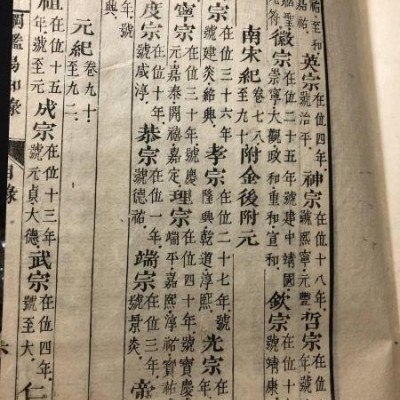 祐.至和.嘉祐.英宗在位四年.號治平.神宗在位十八年.號熙寧.元豐.哲宗在位年號
符.徽宗在位二十五年.號建中靖國.崇寧大觀政和重和宣和.欽宗在位號靖康.
南宋紀卷七八至九十附金後附元
宗在位三十六年.號建炎紹興.孝宗在位二十七年.號隆興乾道淳熙.光宗在位年
寧宗在位三十年.號慶元.嘉泰.開禧.嘉定.理宗在位四十年.號寶慶端平.嘉熙.淳祐.寶祐
度宗在位十年.號咸淳.恭宗在位一年.號德祐.端宗在位三年.號景炎.帝
興.
元紀卷九十一至九二
祖在位十五年號至元.成宗在位十三年號元貞大德.武宗在位四年.號至大.仁
綱鑑易知錄 目錄 六